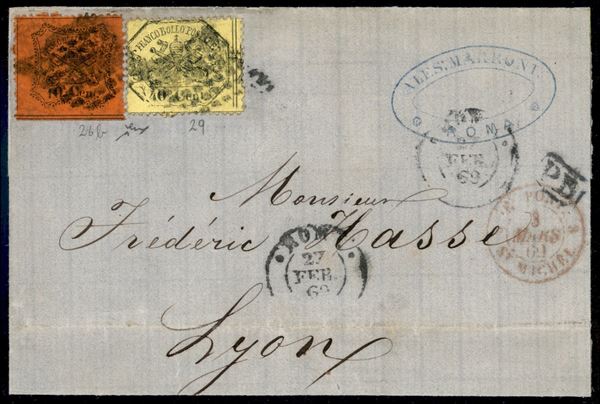 FRANCO BOLLO POSTALE
10 Cent
40 Cent
26b
29
ALES. MARRONI
ROMA
FEB
69
PD
3
MARS
69
ST MICHEL
Monsieur
Frédéric Hasse
ROMA
27
FEB.
69
Lyon